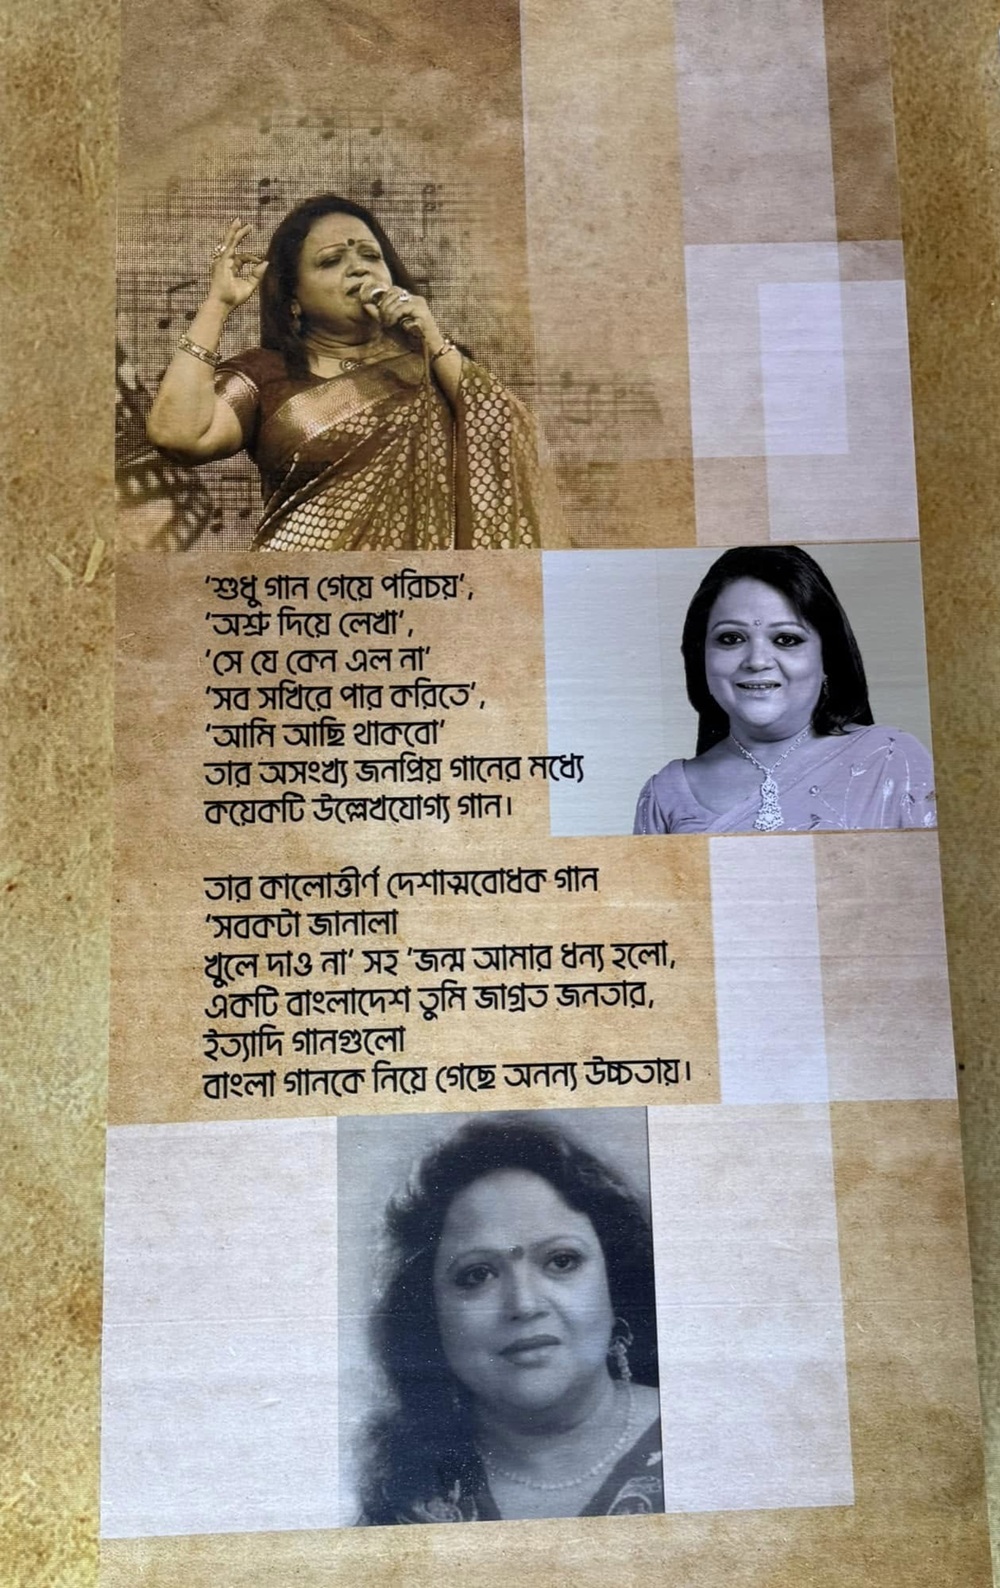 ‘শুধু গান গেয়ে পরিচয়’,
‘অশ্রু দিয়ে লেখা’,
‘সে যে কেন এল না’
‘সব সখিরে পার করিতে’,
‘আমি আছি থাকবো’
তার অসংখ্য জনপ্রিয় গানের মধ্যে
কয়েকটি উল্লেখযোগ্য গান।
তার কালোত্তীর্ণ দেশাত্মবোধক গান
‘সবকটা জানালা
খুলে দাও না’ সহ ‘জন্ম আমার ধন্য হলো,
একটি বাংলাদেশ তুমি জাগ্রত জনতার,
ইত্যাদি গানগুলো
বাংলা গানকে নিয়ে গেছে অনন্য উচ্চতায়।